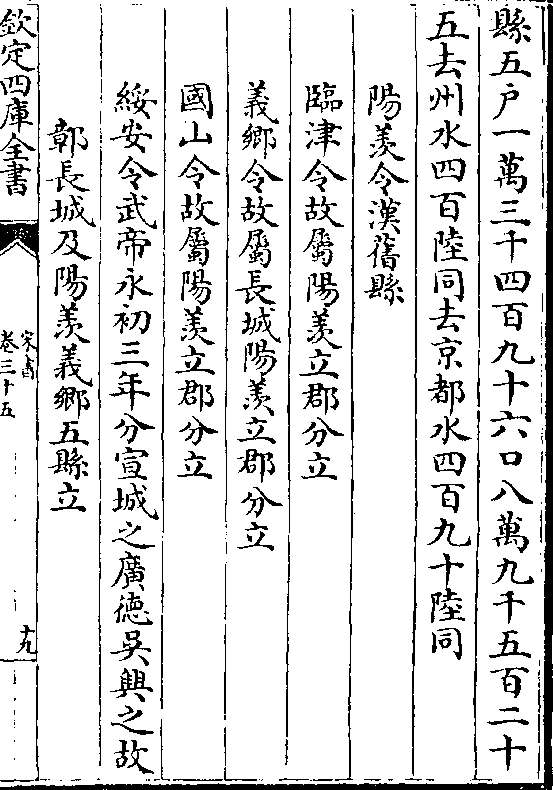 縣五户一萬三千四百九十六口八萬九千五百二十
五去州水四百陸同去京都水四百九十陸同
陽羨令漢舊縣
臨津令故屬陽羨立郡分立
義鄉令故屬長城陽羨立郡分立
國山令故屬陽羨立郡分立
綏安令武帝永初三年分宣城之廣德吳興之故
鄣長城及陽羨義鄉五縣立
欽定四庫全書
宋書
卷三十五
十九